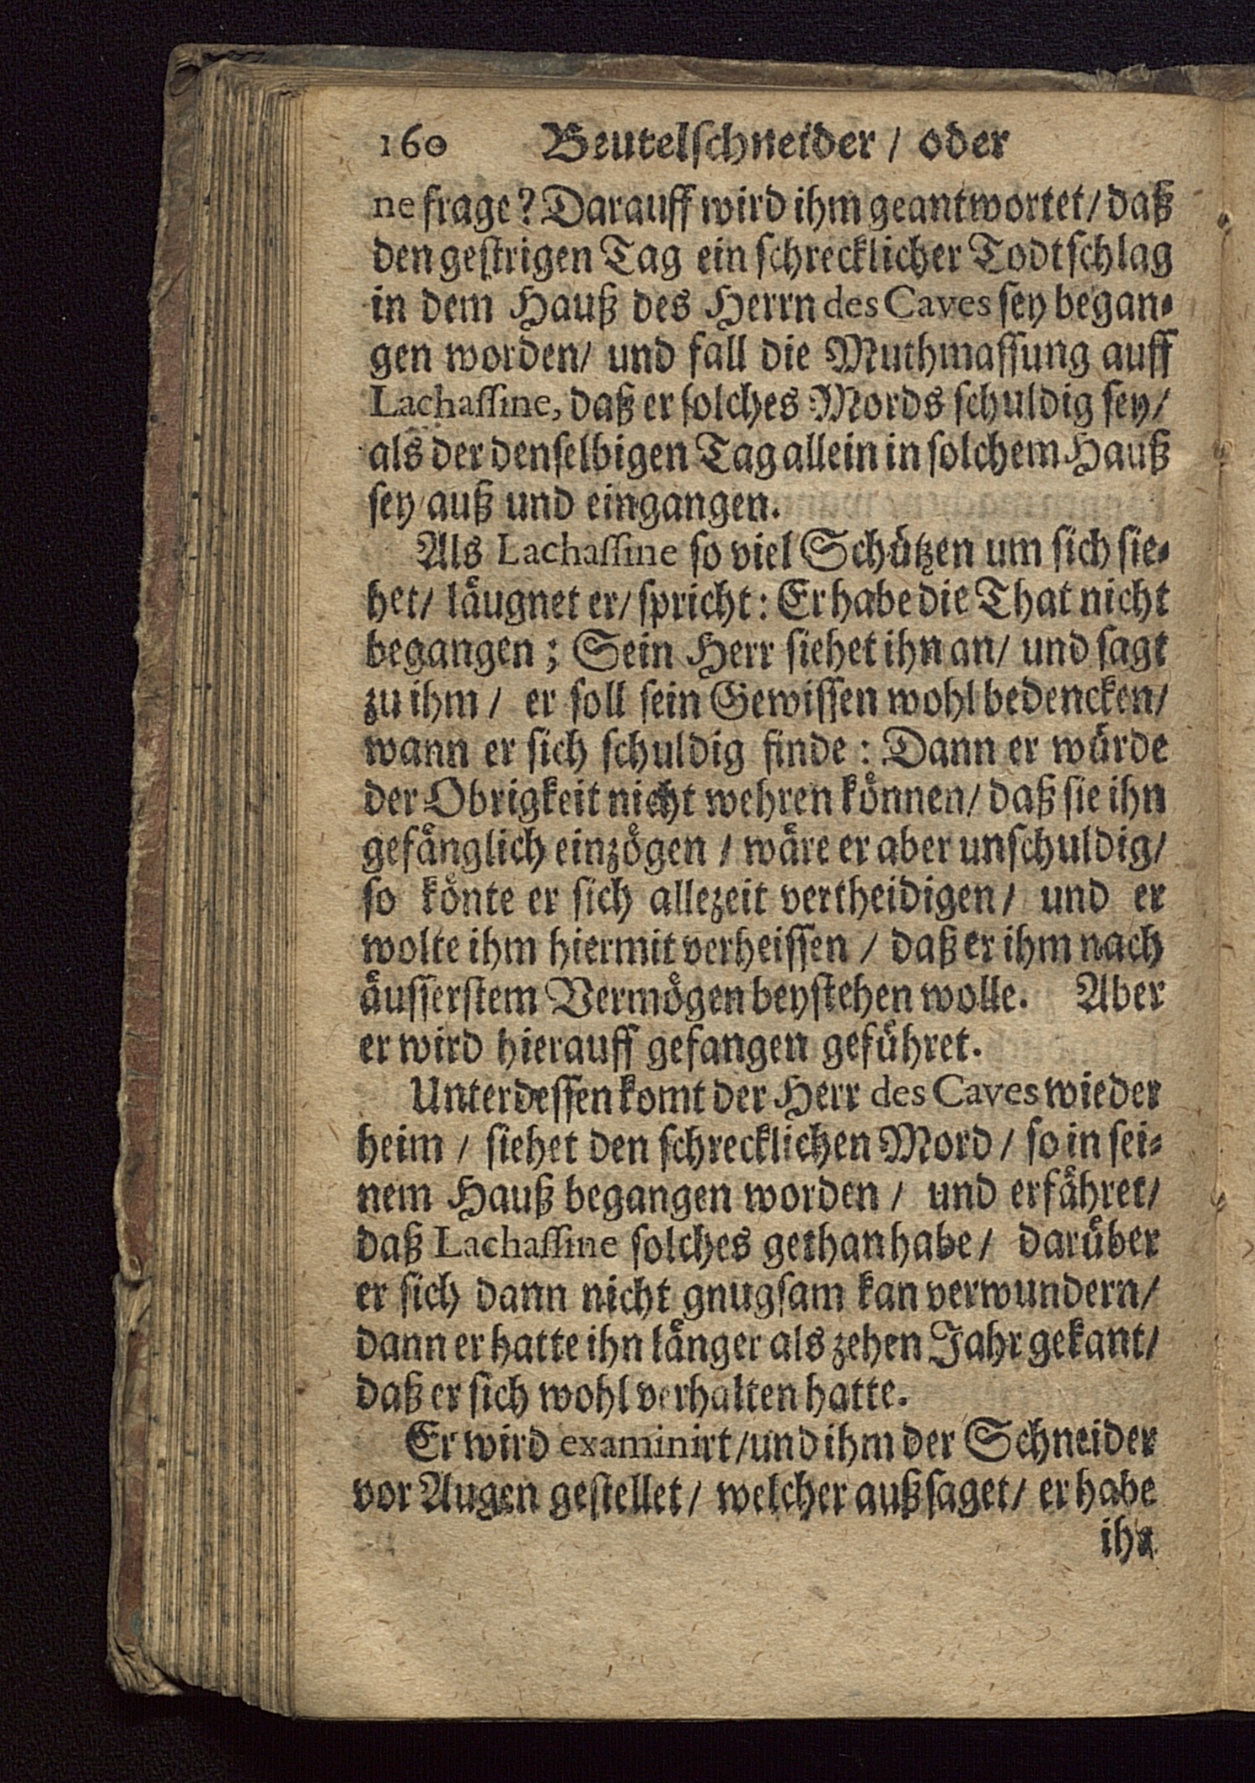 160 Beutelschneider / oder
ne frage? Darauff wird ihm geantwortet/ daß
den gestrigen Tag ein schrecklicher Todtschlag
in dem Hauß des Herrn des Caves sey began-
gen worden/ und fall die Muthmassung auff
Lachassine, daß er solches Mords schuldig sey/
als der denselbigen Tag allein in solchem Hauß
sey auß und eingangen.
Als Lachassine so viel Schützen um sich sie-
het/ läugnet er/ spricht: Er habe die That nicht
begangen; Sein Herr siehet ihn an/ und sagt
zu ihm/ er soll sein Gewissen wohl bedencken/
wann er sich schuldig finde: Dann er würde
der Obrigkeit nicht wehren können/ daß sie ihn
gefänglich einzögen / wäre er aber unschuldig/
so könte er sich allezeit vertheidigen/ und er
wolte ihm hiermit verheissen / daß er ihm nach
äusserstem Vermögen beystehen wolle. Aber
er wird hierauff gefangen geführet.
Unterdessen komt der Herr des Caves wieder
heim / siehet den schrecklichen Mord / so in sei-
nem Hauß begangen worden / und erfähret/
daß Lachassine solches gethan habe/ darüber
er sich dann nicht gnugsam kan verwundern/
dann er hatte ihn länger als zehen Jahr gekant/
daß er sich wohl verhalten hatte.
Er wird examinirt/ und ihm der Schneider
vor Augen gestellet/ welcher außsaget/ er habe
ihn